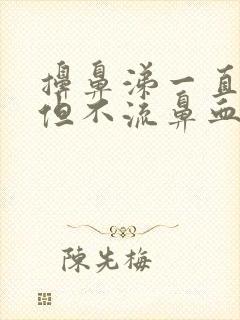 擤鼻涕一直
但不流鼻血
陳先梅